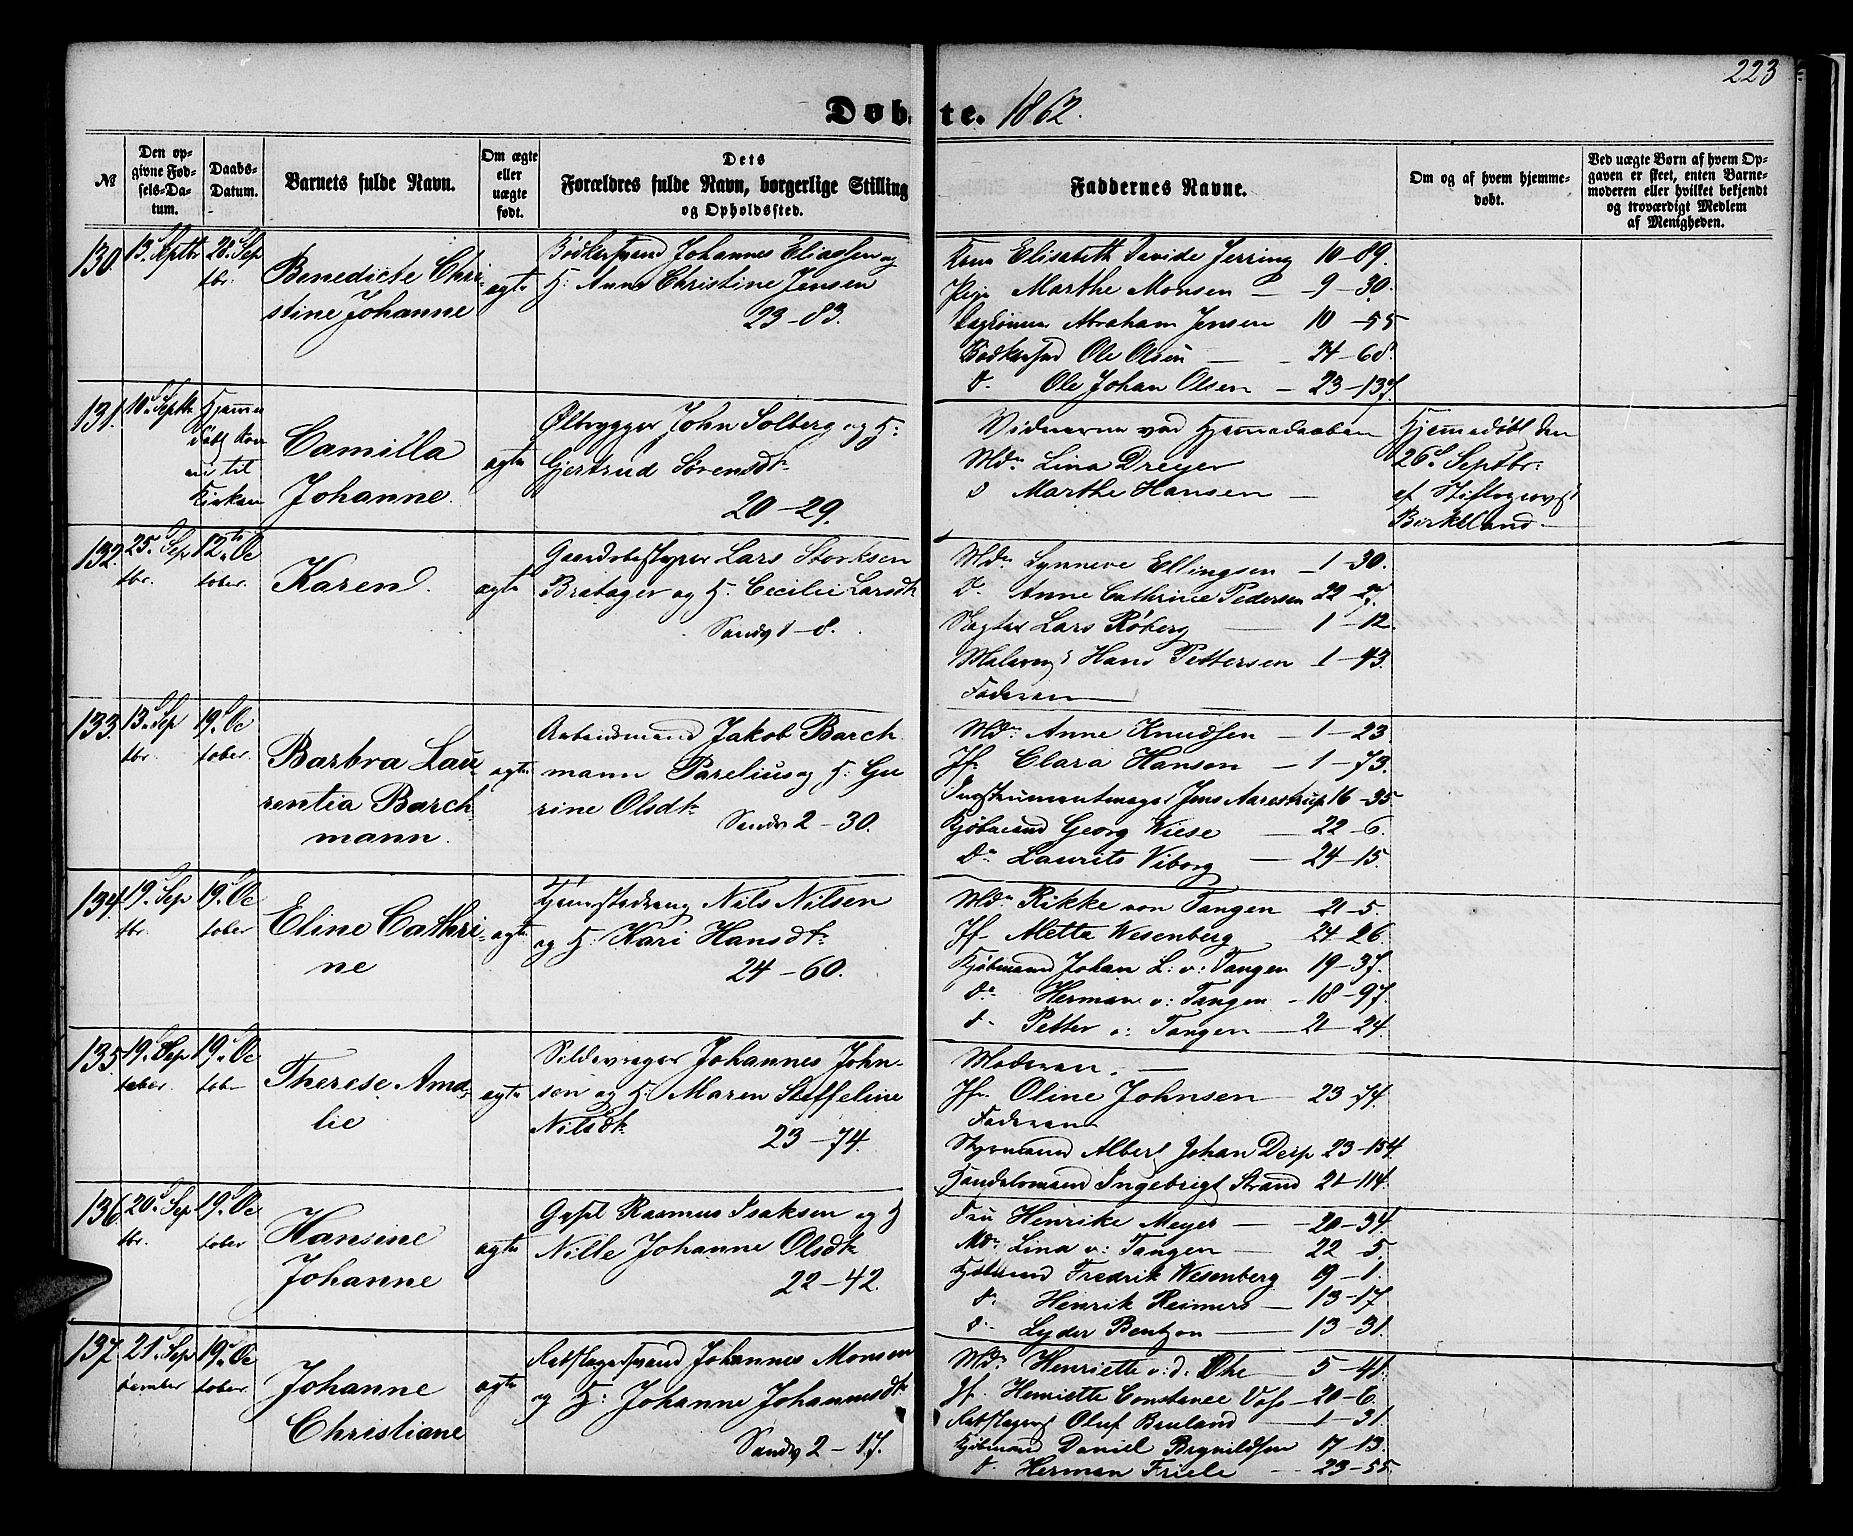 223
Døbte. 1862.
№
Den op-
givne Fød-
sels-Da-
tum.
Daabs-
Datum.
Barnets fulde Navn.
Om ægte
eller
uægte
født.
Dets
Forældres fulde Navn, borgerlige Stilling
og Opholdssted.
Faddernes Navne.
Om og af hvem hjemme-
døbt.
Ved uægte Børn af hvem Op-
gaven er skeet, enten Barne-
moderen eller hvilket bekjendt
og troværdigt Medlem
af Menigheden.
130. 13. Septbr 28. Sep
tbr.
Benedicte Chri-
stine Johanne
ægte
Bødkersvend Johannes Eliassen og
H: Anne Christine Jensen
23-83.
Kone Elisabeth Davide Jerring 10-89.
Pige Marthe Monsen - 9-30.
Abraham Jensen 10-55
Ole Olsen - 34-68.
d. Ole Johan Olsen - 23-137.
131. 10. Septbr Hjemme
døbt
til
Kirken
Camilla
Johanne.
ægte
Ølbrygger John Solberg og H:
Gjertrud Sørensdtr
20-29.
Vidnerne ved Hjemmedaaben
Md. Lina Dreyer
d Marthe Hansen -
Hjemmedøbt den
26. Septbr:
af
Birkeland
132. 25. Sep
tbr.
12. Oc
tober.
Karen
ægte
Gaardsbestyrer Lars Storksen
Bratager og H. Cecilie Larsdtr
Sandv 1-8.
Md. Synneve Ellingsen -1-30.
D. Anne Cathrine Pedersen 22-27.
Slagter Lars Røberg 1-12.
Malersv Hans Pettersen 1-43.
Faderen
133. 13. Sep
tbr.
19. Oc
tober.
Barbra Lau-
rentia Barch
mann.
ægte
Arbeidsmand Jakob Barch
mann Parelius og H: Gu
rine Olsdtr
Sandv 2-30.
Md. Anne Knudsen -1-23
Jf. Clara Hansen -1-73.
Instrumentmager Jens Aarestrup 16-35.
Kjøbmand Georg Wiese - 22-6.
Do Laurits Viborg - 24-15.
134. 19. Sep
tbr.
19. Oc
tober
Eline Cathri-
ne
ægte
Tjenestedreng Nils Nilsen
og H: Kari Hansdtr.
24-60.
Md. Rikke von Tangen - 21-5.
Jf. Metta Wesenberg 24-26.
Kjøbmand Johan L: v: Tangen 19-37.
do Herman v: Tangen - 18-97.
d. Petter v: Tangen - 21-24.
135. 19. Sep
tember.
19. Oc
tober
Therese Ama-
lie
ægte
Sildevrager Johannes John-
sen og H: Maren Steffeline
Nilsdtr.
23-74.
Moderen.
Jf. Oline Johnsen - 23-74.
Faderen
Styrmand Albert Johan Derp 23-154.
Handelsmand Ingebrigt Strand 21-114.
136. 20. Sep
tbr.
19. Oc
tober
Hansine
Johanne
ægte
Rasmus Isaksen og H
Nille Johanne Olsdtr
22-42.
Fru Henrike Meyer - 20-34.
Md. Lina v: Tangen - 22-5.
Kjøbmand Fredrik Wesenberg 19-1.
d. Henrik Reimers - 13-17.
d. Lyder Bentzon - 13-31.
137. 21. Sep
tember
19. Oc
tober.
Johanne
Christiane
ægte
Rebslagersvend Johannes Monsen
og H: Johanne Johannesdtr
Sandv 2-17.
Md. Henriette v: d. Ohe - 5-41.
Jf. Henriette Constance Voss - 20-6.
Rebslagersv Oluf Bruland - 1-31.
Kjøbmand Daniel Brynildsen 17-13.
d. Herman Friele - 23-55.